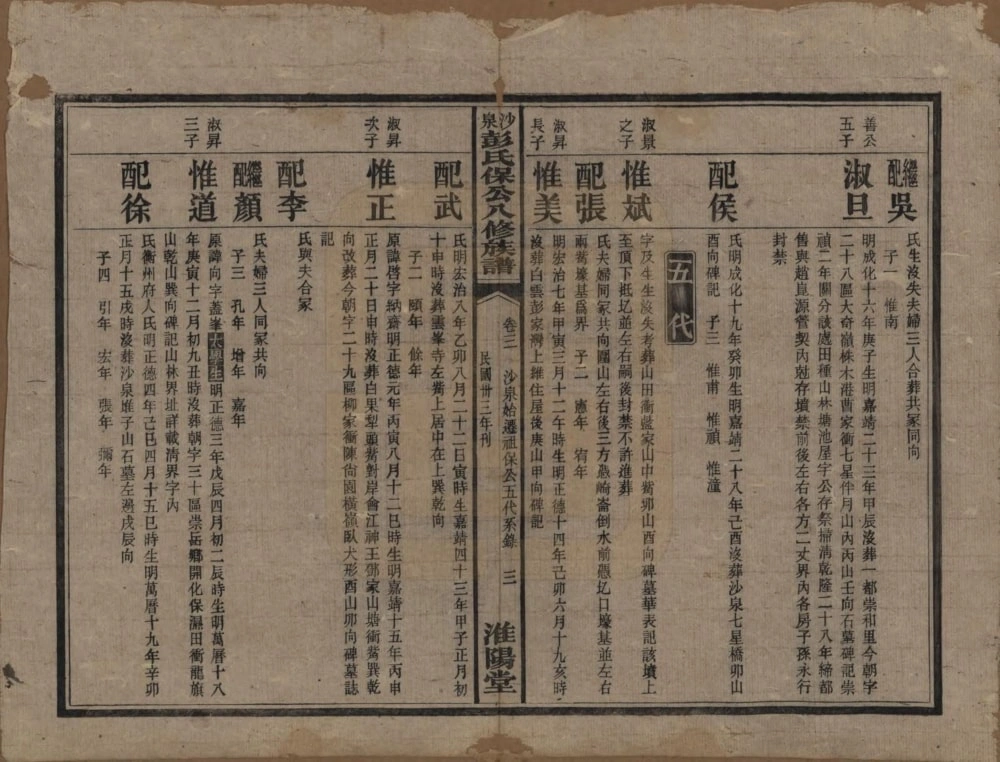 繼配吳
氏生沒失夫婦三人合葬共冢同向
子一 惟南
善公五子
淑旦
明成化十六年庚子生明嘉靖二十三年甲辰沒葬一都崇和里今朝字
二十八區大奇嶺株木港曹家衝七星伴月山內丙山壬向石墓碑記崇
禎二年闗分該處田種山林塘池屋宇公存祭掃淸乾隆二十八年締都
舊與趙良源管契內剋存墳禁前後左右各方二丈界內各房子孫永行
封禁
配侯
氏明成化十九年癸卯生明嘉靖二十八年己酉沒葬沙泉七星橋卯山
酉向碑記 子三 惟甫 惟禎 惟潼
五代
淑景之子
惟斌
字及生沒失考葬山田衝藍家山中嘴卯山酉向碑墓華表記該墳上
至頂下抵圪並左右嗣後封禁不許進葬
配張
氏夫婦同冢共向圍山左右後三方歲崎崙倒水前憑圪口壕基並左右
兩嘴壕基爲界 子二 憲年 宥年
淑昇長子
惟美
明宏治七年甲寅三月十二午時生明正德十四年己卯六月十九亥時
沒葬白雲彭家灣上雅住屋後庚山甲向碑記
沙泉彭氏保公八修族譜
卷三 沙泉始遷祖保公五代系錄 三
民國卅三年刊
淮陽堂
配武
氏明宏治八年乙卯八月二十二日寅時生嘉靖四十三年甲子正月初
十申時沒葬雲峯寺左嘴上居中在上巽乾向
子二 頤年 餘年
淑昇次子
惟正
原諱偕字納齋明正德元年丙寅八月十二巳時生明嘉靖十五年丙申
正月二十日申時沒葬白果犁頭嘴對岸會江神王鄧家山塘衝嘴巽乾
向改葬今朝字二十九區柳家衝陳尙園橫嶺臥犬形酉山卯向碑墓誌
記
配李
氏與夫合冢
繼配顏
氏夫婦三人同冢共向
子三 孔年 增年 嘉年
淑昇三子
惟道
原諱向字蓋峯太學生明正德三年戊辰四月初二辰時生明萬曆十八
年庚寅十二月初九丑時沒葬朝字三十區崇岳鄉開化保濕田衝龍旗
山乾山巽向碑記山林界址詳載淸界字內
配徐
氏衡州府人氏明正德四年己巳四月十五巳時生明萬曆十九年辛卯
正月十五戌時沒葬沙泉堆子山石墓左邊戌辰向
子四 引年 宏年 張年 彌年